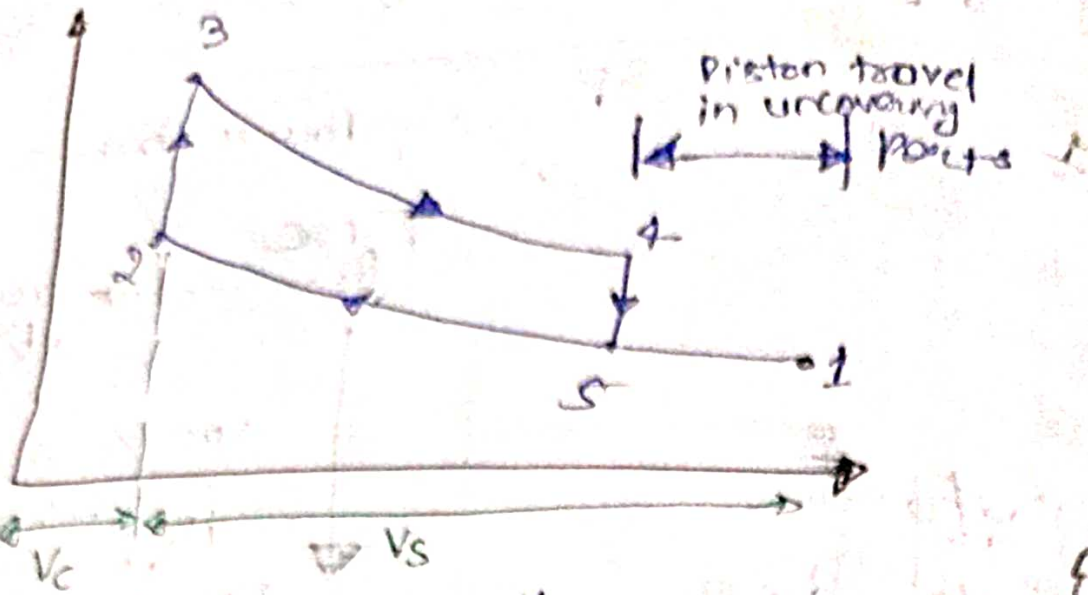 3
Piston travel
in uncovering
Ports
4
2
1
5
Vc
Vs